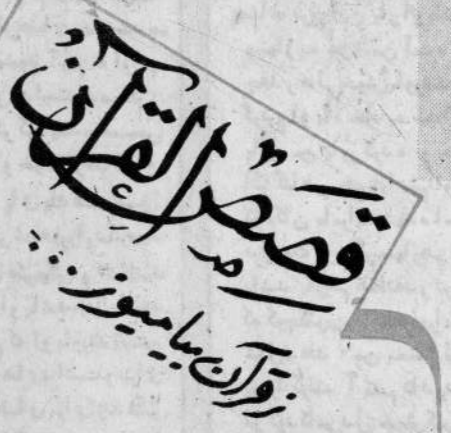 قصص القرآن
ز قرآن بیامیوز...